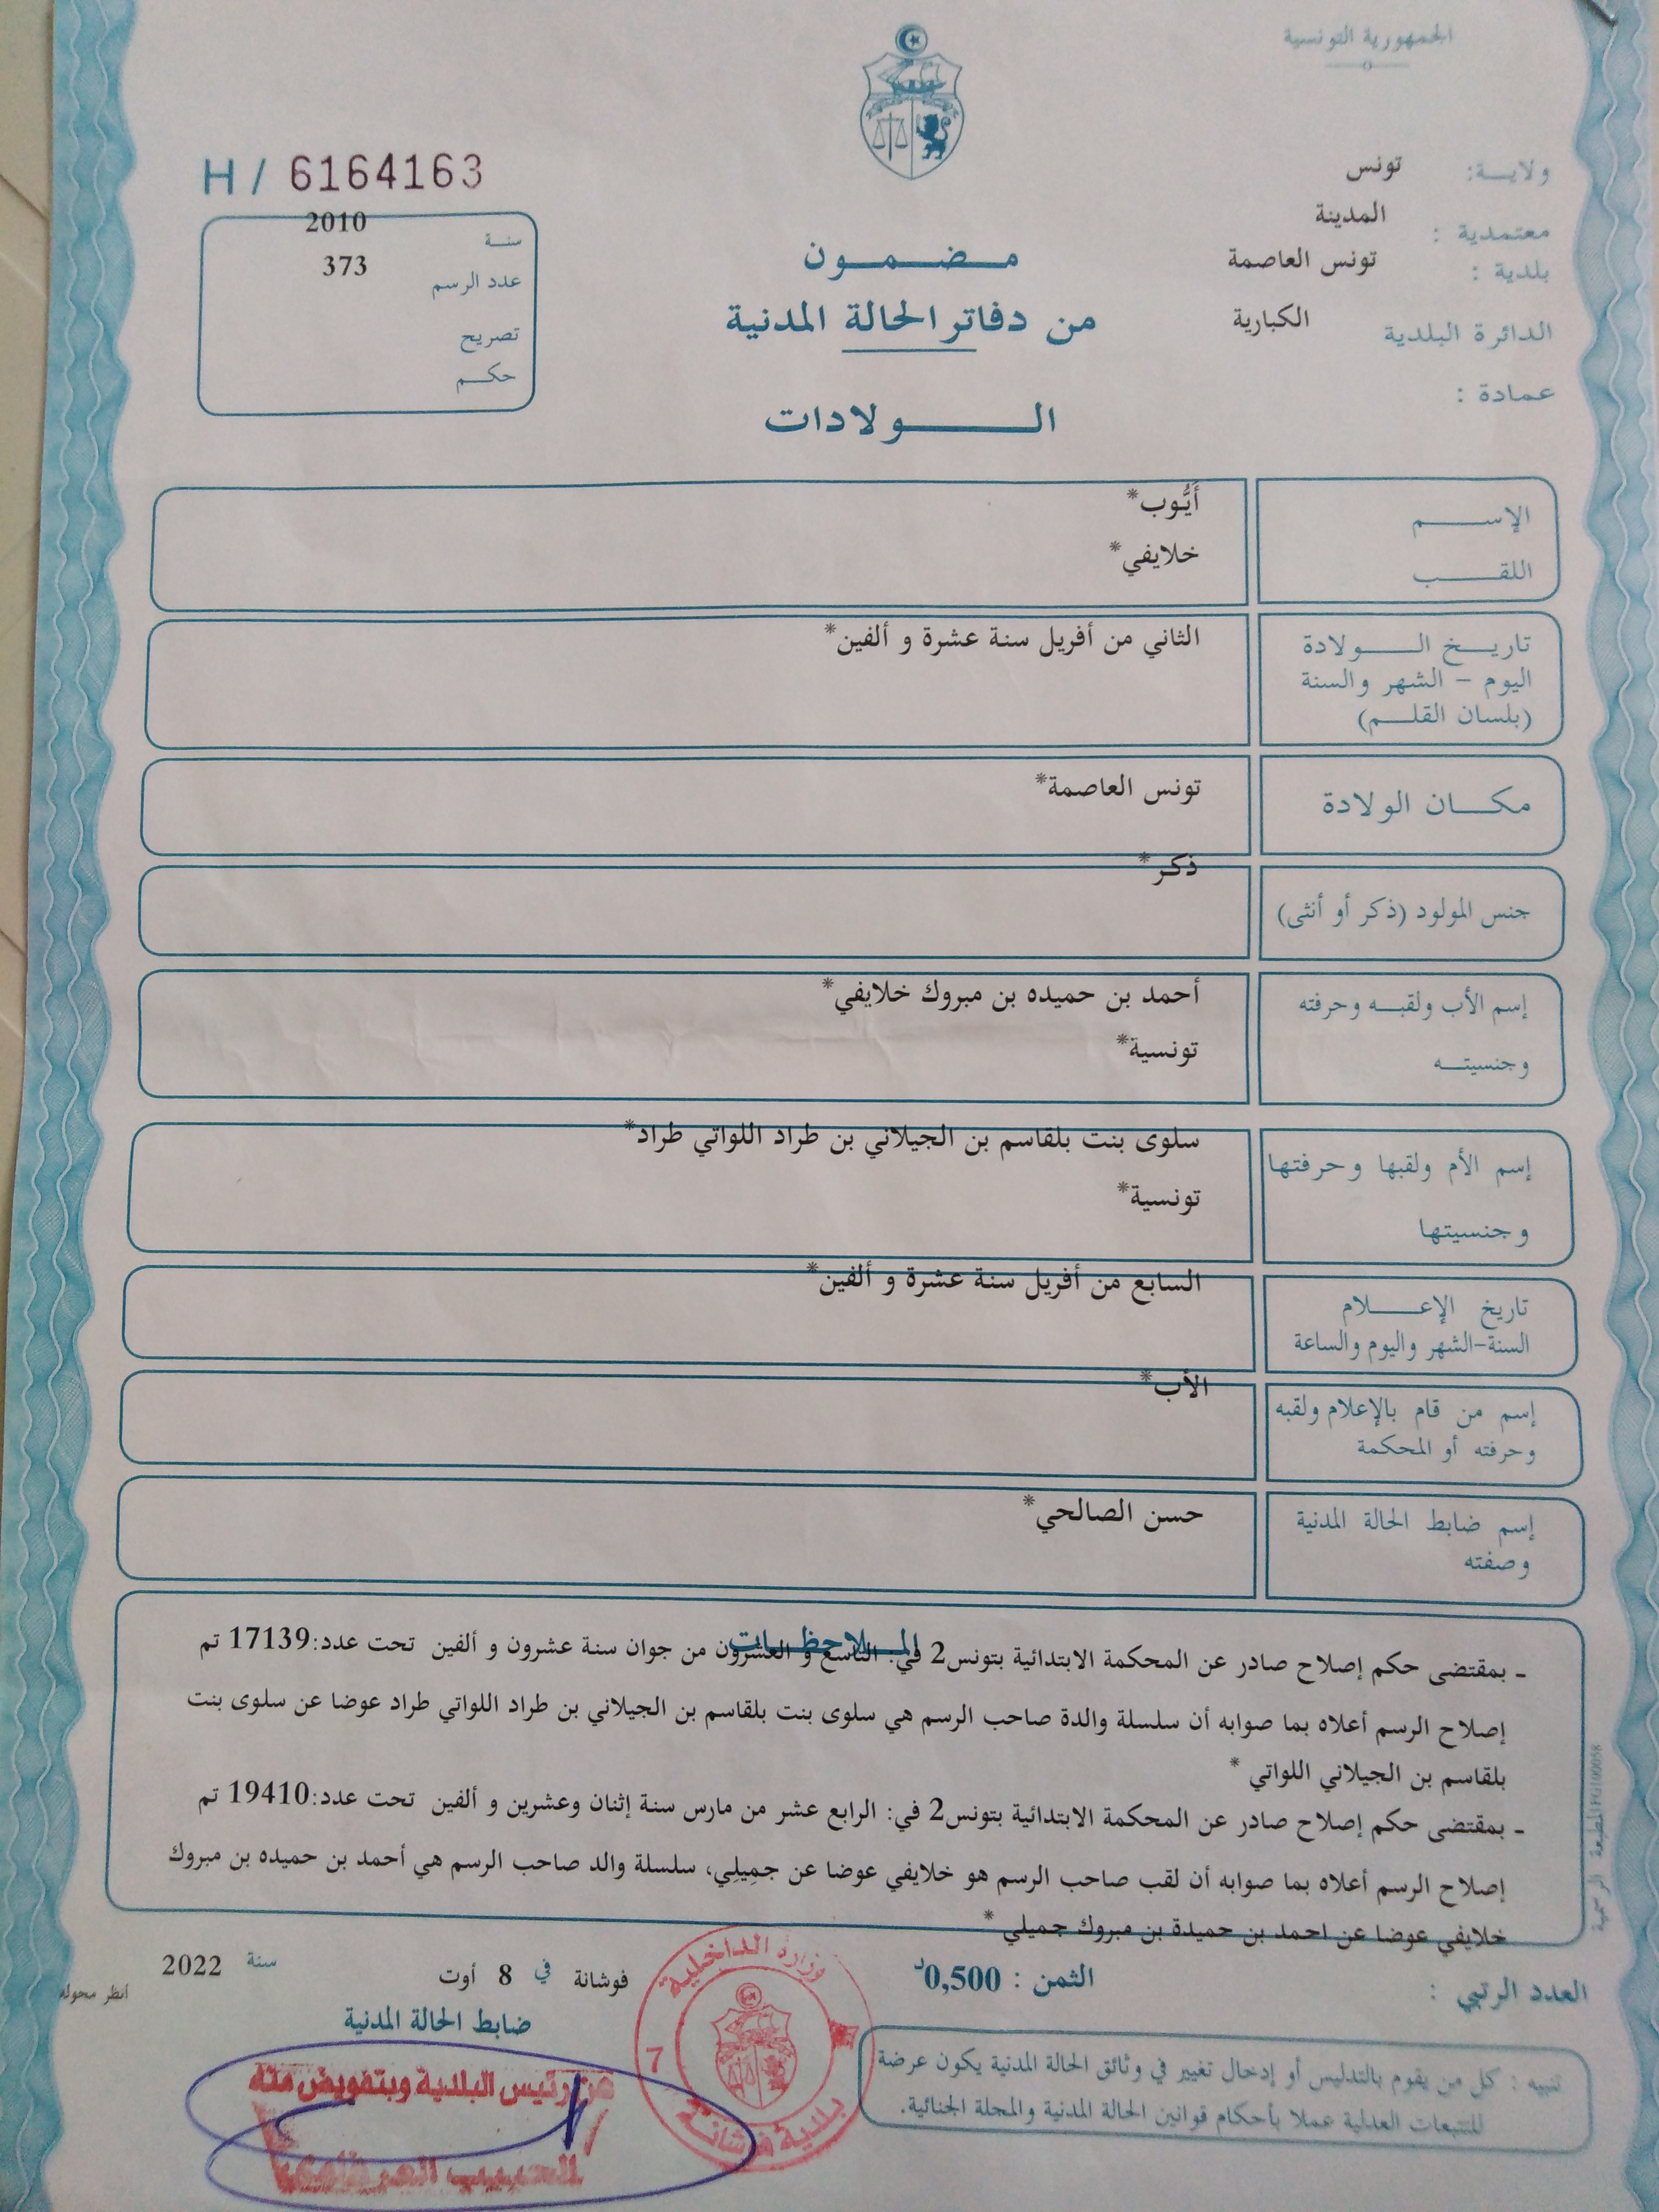 الجمهورية التونسية
H / 6164163
ولايـــة: تونس
معتمدية : المدينة
بلدية : تونس العاصمة
الدائرة البلدية الكبارية
عمادة :
سنـة 2010
عدد الرسم 373
تصريح
حكـــم
مـــضـــمـــون
من دفاتر الحالة المدنية
الـــــولادات
الإســـــم أَيُّوب*
اللقـــــب خلايفي*
تاريـــخ الـــــولادة الثاني من أفريل سنة عشرة و ألفين*
اليوم – الشهر والسنة
(بلسان القلـــم)
مكـــان الولادة تونس العاصمة*
جنس المولود (ذكر أو أنثى) ذكر*
إسم الأب ولقبـــه وحرفته أحمد بن حميده بن مبروك خلايفي*
وجنسيتـــه تونسية*
إسم الأم ولقبها وحرفتها سلوى بنت بلقاسم بن الجيلاني بن طراد اللواتي طراد*
وجنسيتها تونسية*
تاريخ الإعـــــلام السابع من أفريل سنة عشرة و ألفين*
السنة-الشهر واليوم والساعة
إسم من قام بالإعلام ولقبه الأب*
وحرفته أو المحكمة
إسم ضابط الحالة المدنية حسن الصالحي*
وصفته
المـــلاحظـــات
ـ بمقتضى حكم إصلاح صادر عن المحكمة الابتدائية بتونس2 في: التاسع و العشرون من جوان سنة عشرون و ألفين تحت عدد:17139 تم
إصلاح الرسم أعلاه بما صوابه أن سلسلة والدة صاحب الرسم هي سلوى بنت بلقاسم بن الجيلاني بن طراد اللواتي طراد عوضا عن سلوى بنت
بلقاسم بن الجيلاني اللواتي *
ـ بمقتضى حكم إصلاح صادر عن المحكمة الابتدائية بتونس2 في: الرابع عشر من مارس سنة إثنان وعشرين و ألفين تحت عدد:19410 تم
إصلاح الرسم أعلاه بما صوابه أن لقب صاحب الرسم هو خلايفي عوضا عن جمِيلِي، سلسلة والد صاحب الرسم هي أحمد بن حميده بن مبروك
خلايفي عوضا عن احمد بن حميدة بن مبروك جميلي *
العدد الرتبي :
الثمن : 0,500د
فوشانة في 8 أوت سنة 2022
أنظر محوله
ضابط الحالة المدنية
عن رئيس البلدية وبتفويض منه
وزارة الداخلية
7
بلدية فوشانة
تنبيه : كل من يقوم بالتدليس أو إدخال تغيير في وثائق الحالة المدنية يكون عرضة
للتتبعات العدلية عملا بأحكام قوانين الحالة المدنية والمجلة الجنائية.
المطبعة الرسمية